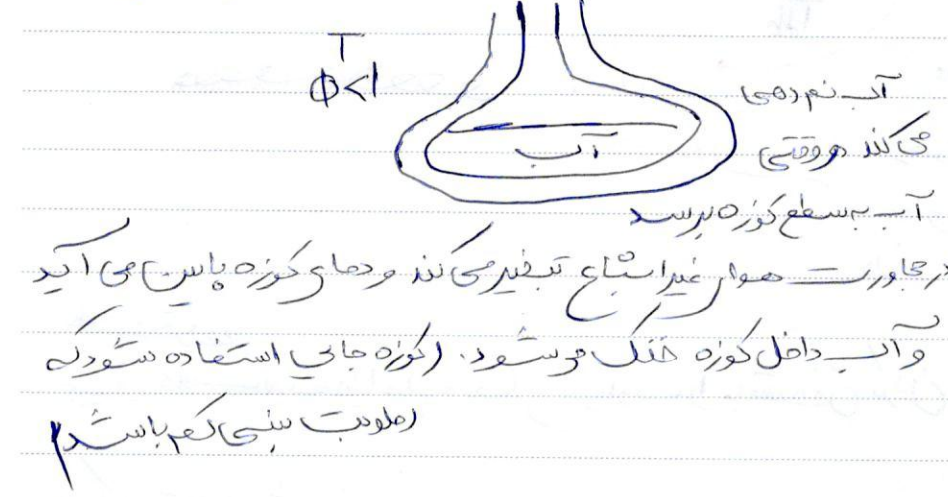 T
φ<1
آب نم دهی
می کند و وقتی
آب
آب به سطح کوزه برسد
در مجاورت هوای غیر اشباع تبخیر می کند و دمای کوزه پایین می آید
و آب داخل کوزه خنک می شود. (کوزه جایی استفاده شود که
رطوبت نسبی کم باشد)